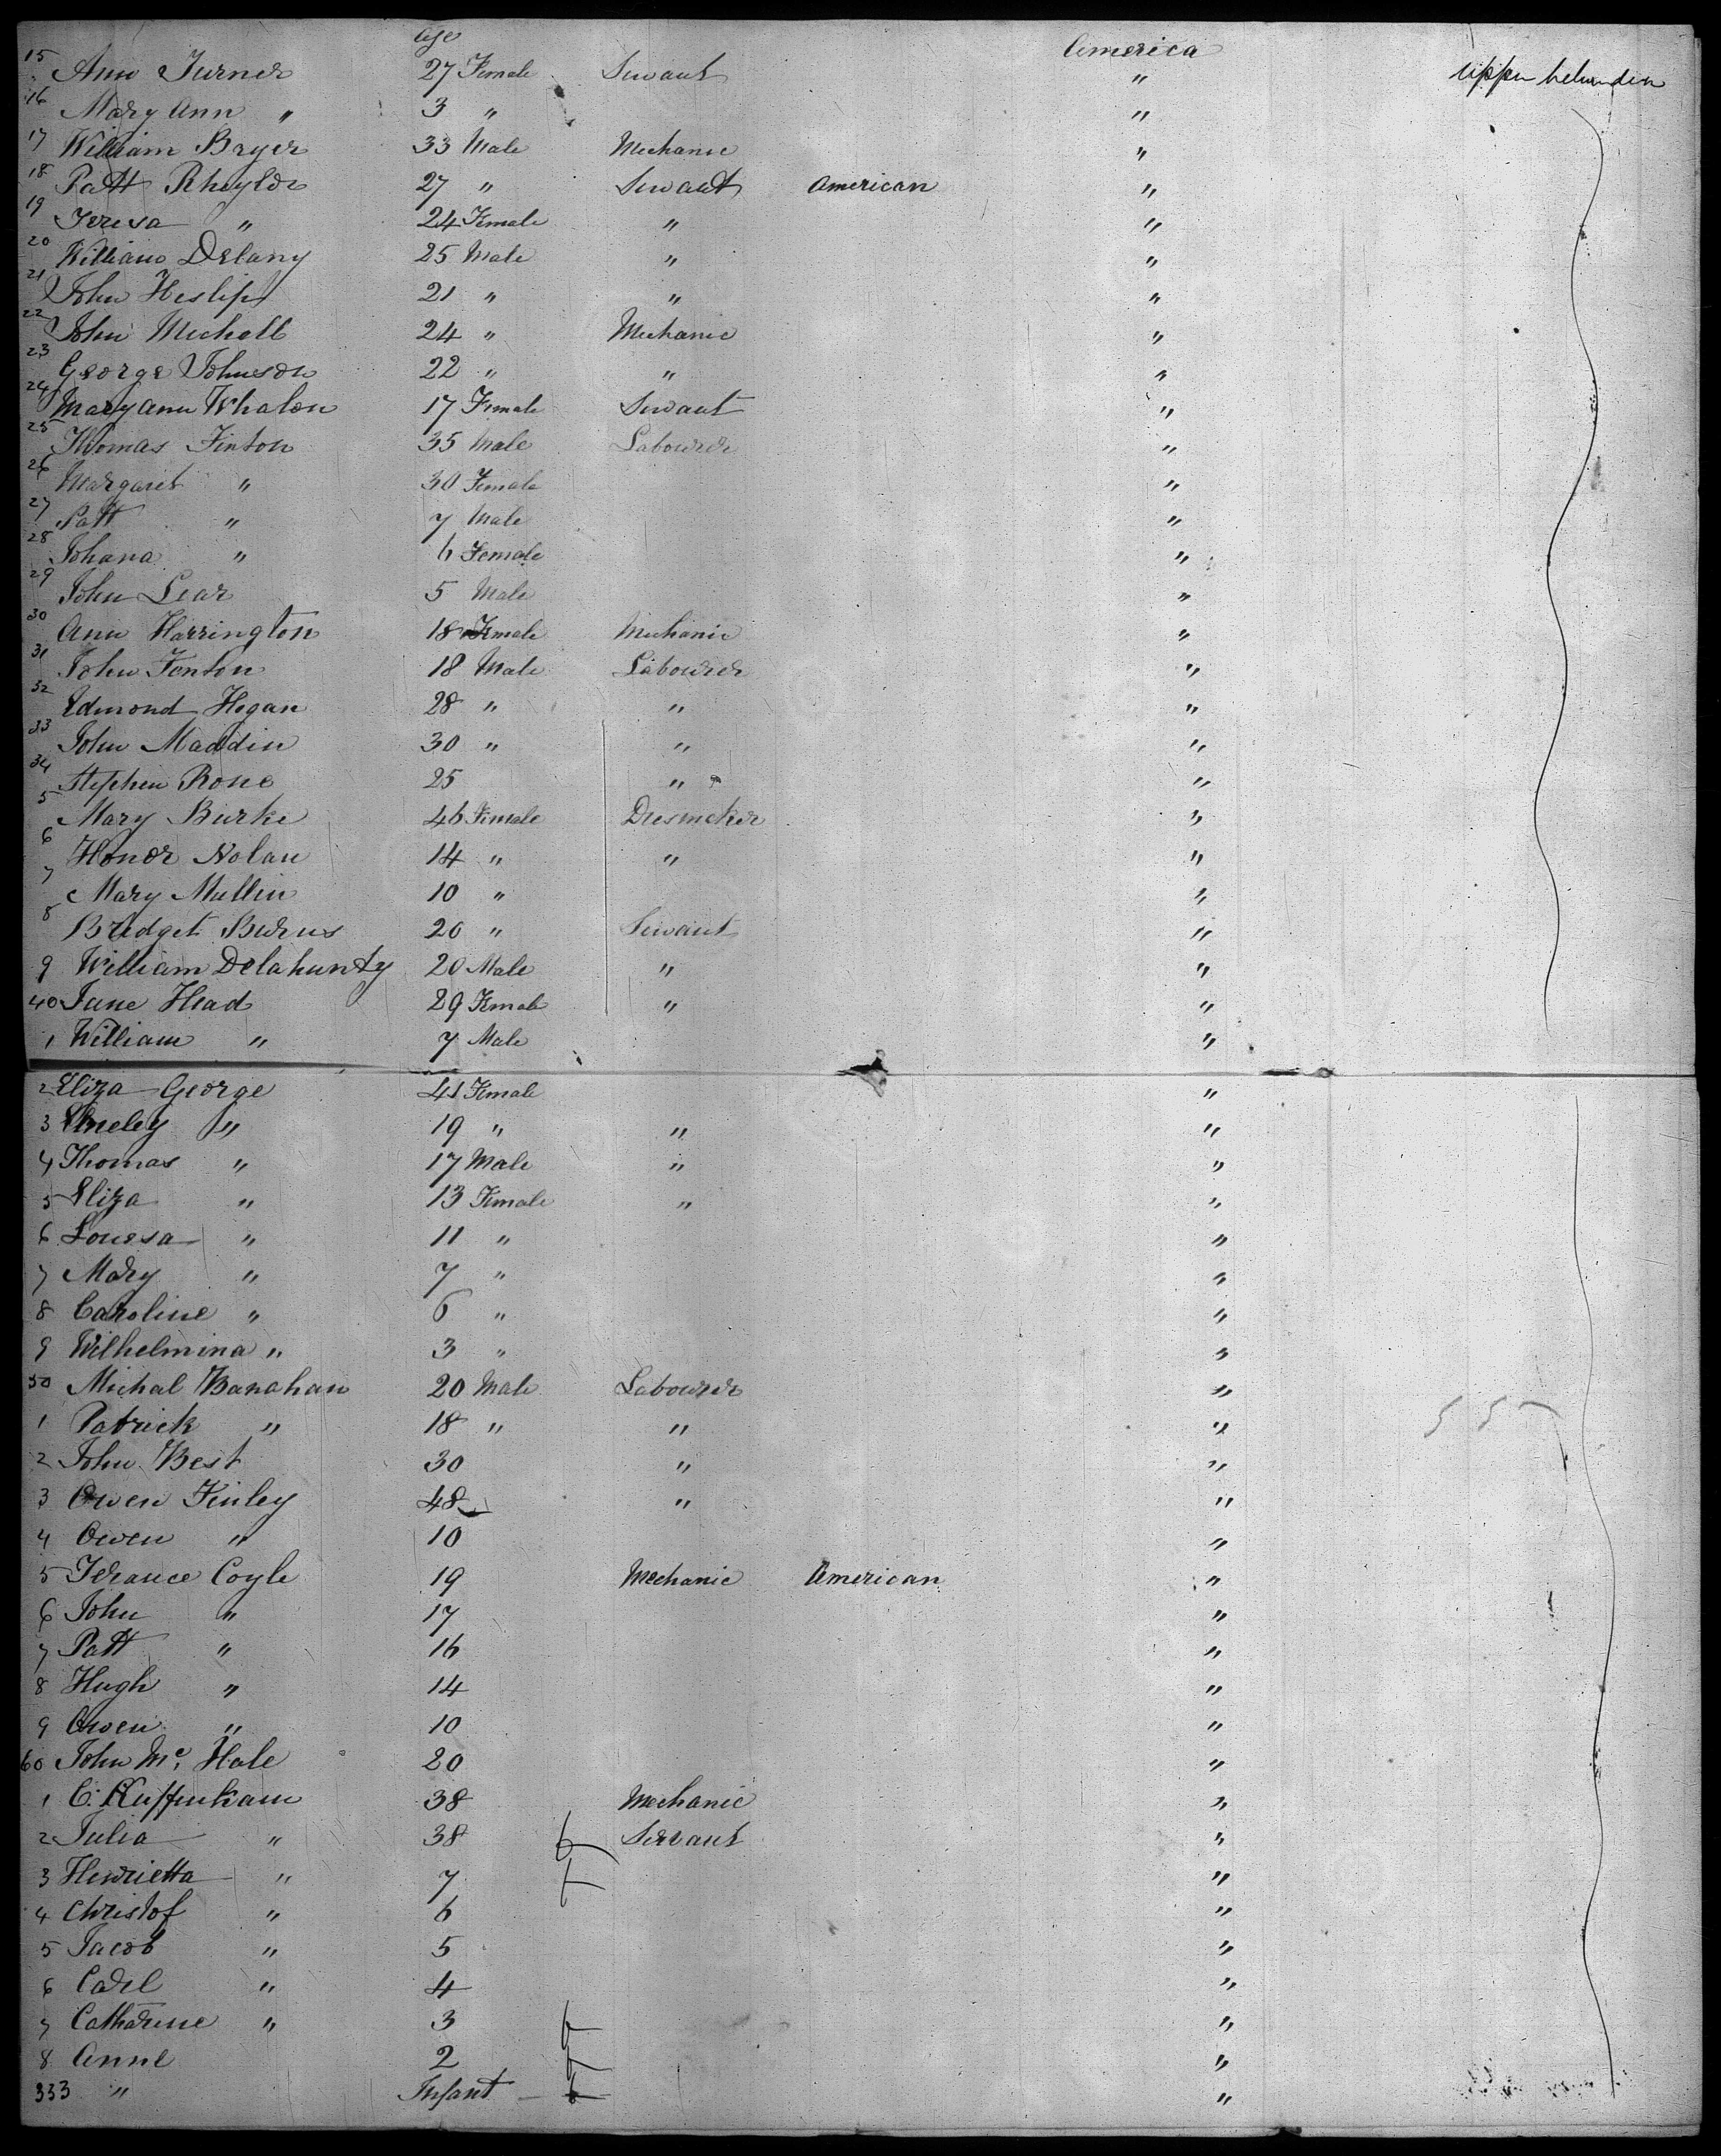 Age America
15 Ann Turner 27 Female Servant " Upper between
16 Mary Ann " 3 " "
17 William Bryer 33 Male Mechanic "
18 Patt 27 " Servant American "
19 Teresa " 24 Female " "
20 William Delany 25 Male " "
21 John Heslip 21 " " "
22 John Micholl 24 " Mechanic "
23 George Johnson 22 " " "
24 Mary Ann Whalon 17 Female Servant "
25 Thomas Finton 35 Male Labourer "
26 Margaret " 30 Female "
27 Patt " 7 Male "
28 Johana " 6 Female "
29 John Lear 5 Male "
30 Ann Harrington 18 Female Mechanic "
31 John Fenton 18 Male Labourer "
32 Edmond Hogan 28 " " "
33 John Maddin 30 " " "
34 Stephen Rone 25 " "
5 Mary Burke 46 Female Dresmeker "
6 Honor Nolan 14 " " "
7 Mary Mullin 10 " "
8 Bridget Burns 20 " Servant "
9 William Delahunty 20 Male " "
40 Jane Head 29 Female " "
1 William " 7 Male "
2 Eliza George 41 Female "
3 " 19 " " "
4 Thomas " 17 Male " "
5 Eliza " 13 Female " "
6 Louesa " 11 " "
7 Mary " 7 " "
8 Caroline " 6 " "
9 Wilhelmina " 3 " "
50 Michal Banahan 20 Male Labourer "
1 Patrick " 18 " " " 55
2 John Best 30 " "
3 Owen Finley 48 " "
4 Owen " 10 "
5 Terance Coyle 19 Mechanic American "
6 John " 17 "
7 Patt " 16 "
8 Hugh " 14 "
9 Owen " 10 "
60 John Mc Hale 20 "
1 C. 38 Mechanic "
2 Julia " 38 Servant "
3 Henrietta " 7 "
4 Christof " 6 "
5 Jacob " 5 "
6 Carl " 4 "
7 Catharine " 3 "
8 Anne 2 "
333 " Infant "